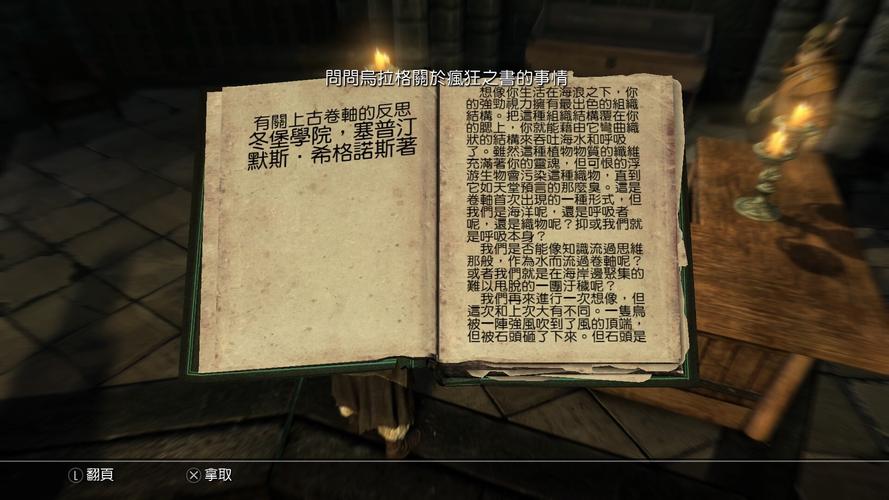 問問烏拉格關於瘋狂之書的事情
有關上古卷軸的反思
冬堡學院，塞普汀
默斯·希格諾斯著
想像你生活在海浪之下，你
的強勁視力擁有最出色的組織
結構。把這種組織結構覆在你
的腮上，你就能藉由它彎曲織
狀的結構來吞吐海水和呼吸
了。雖然這種植物物質的纖維
充滿著你的靈魂，但可恨的浮
游生物會污染這種織物，直到
它如天堂預言的那麼臭。這是
卷軸首次出現的一種形式，但
我們是海洋呢，還是呼吸者
呢，還是織物呢？抑或我們就
是呼吸本身？
我們是否能像知識流過思維
那般，作為水而流過卷軸呢？
或者我們就是在海岸邊聚集的
難以甩脫的一團汙穢呢？
我們再來進行一次想像，但
這次和上次大有不同。一隻鳥
被一陣強風吹到了風的頂端，
但被石頭砸了下來。但石頭是
L 翻頁
X 拿取